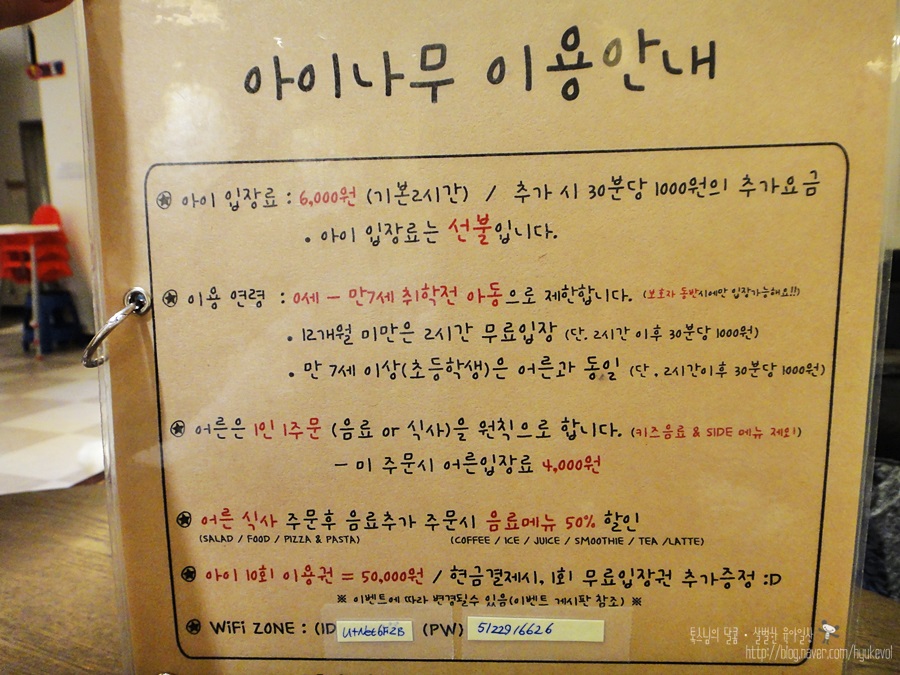 아이나무 이용안내
아이 입장료 : 6,000원 (기본2시간) / 추가 시 30분당 1000원의 추가요금
• 아이 입장료는 선불입니다.
이용 연령 : 0세 - 만7세 취학전 아동으로 제한합니다. (보호자 동반시에만 입장가능해요!!)
• 12개월 미만은 2시간 무료입장 (단, 2시간 이후 30분당 1000원)
• 만 7세 이상(초등학생)은 어른과 동일 (단, 2시간이후 30분당 1000원)
어른은 1인 1주문 (음료 or 식사)을 원칙으로 합니다. (키즈음료 & SIDE 메뉴 제외!)
- 미 주문시 어른입장료 4,000원
어른 식사 주문후 음료추가 주문시 음료메뉴 50% 할인
(SALAD / FOOD / PIZZA & PASTA) (COFFEE / ICE / JUICE / SMOOTHIE / TEA /LATTE)
아이 10회 이용권 = 50,000원 / 현금결제시, 1회 무료입장권 추가증정 :D
※ 이벤트에 따라 변경될수 있음(이벤트 게시판 참조) ※
WiFi ZONE : (ID (PW) 5122916626
http://blog.naver.com/hyukevol